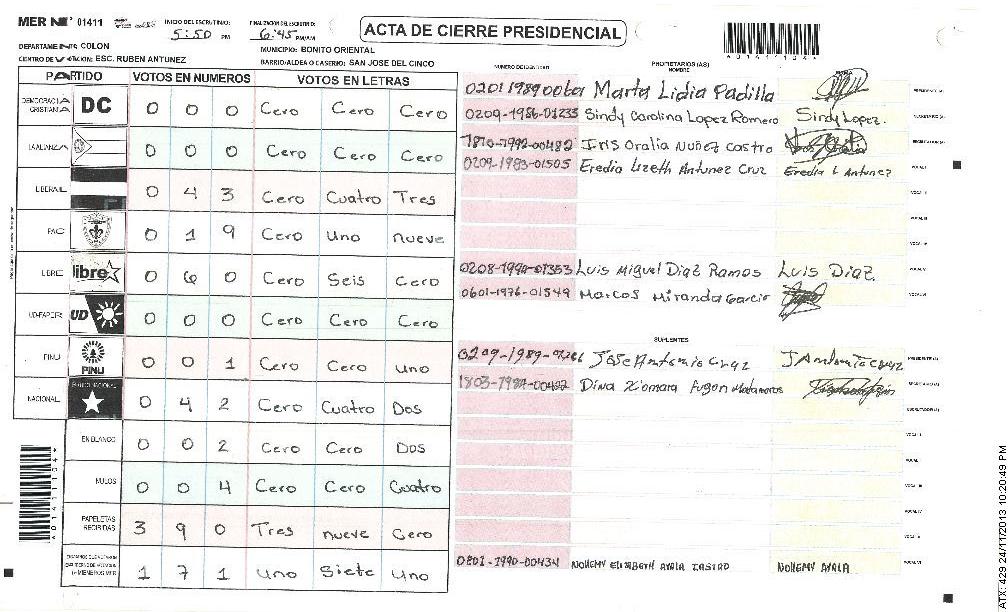 MER Nº 01411
INICIO DEL ESCRUTINIO: 5:50 PM
FINALIZACION DEL ESCRUTINIO: 6:45 PM/AM
ACTA DE CIERRE PRESIDENCIAL
DEPARTAMENTO: COLON
MUNICIPIO: BONITO ORIENTAL
CENTRO DE VOTACION: ESC. RUBEN ANTUNEZ
BARRIO/ALDEA O CASERIO: SAN JOSE DEL CINCO
PARTIDO VOTOS EN NUMEROS VOTOS EN LETRAS
DEMOCRACIA CRISTIANA DC 0 0 0 Cero Cero Cero
LA ALIANZA 0 0 0 Cero Cero Cero
LIBERAL 0 4 3 Cero Cuatro Tres
PAC 0 1 9 Cero Uno nueve
LIBRE libre 0 6 0 Cero Seis Cero
UD-FAPER UD 0 0 0 Cero Cero Cero
PINU PINU 0 0 1 Cero Cero Uno
NACIONAL 0 4 2 Cero Cuatro Dos
EN BLANCO 0 0 2 Cero Cero Dos
NULOS 0 0 4 Cero Cero Cuatro
PAPELETAS RECIBIDAS 3 9 0 Tres nueve Cero
1 7 1 Uno Siete Uno
NUMERO DE IDENTIDAD PROPIETARIOS (AS) NOMBRE FIRMA
Marta Lidia Padilla PRESIDENTE(A)
0209-1986-01235 Sindy Carolina Lopez Romero Sindy Lopez. SECRETARIO(A)
1810-1992-00482 Iris Oralia Nuñez Castro
0209-1983-01505 Eredia Lizeth Antunez Cruz Eredia L Antunez VOCAL I
0208-1990-01353 Luis Miguel Diaz Ramos Luis Diaz.
0601-1976-01549 Marcos Miranda Garcia
SUPLENTES
Jose Antonio Cruz J Antonio Cruz PRESIDENTE(A)
Dina Xiomara Fugon Matamoros
0801-1990-00434 NOHEMY ELIZABETH AYALA CASTRO NOHEMY AYALA
A01411104
ATX: 429 24/11/2013 10:20:49 PM